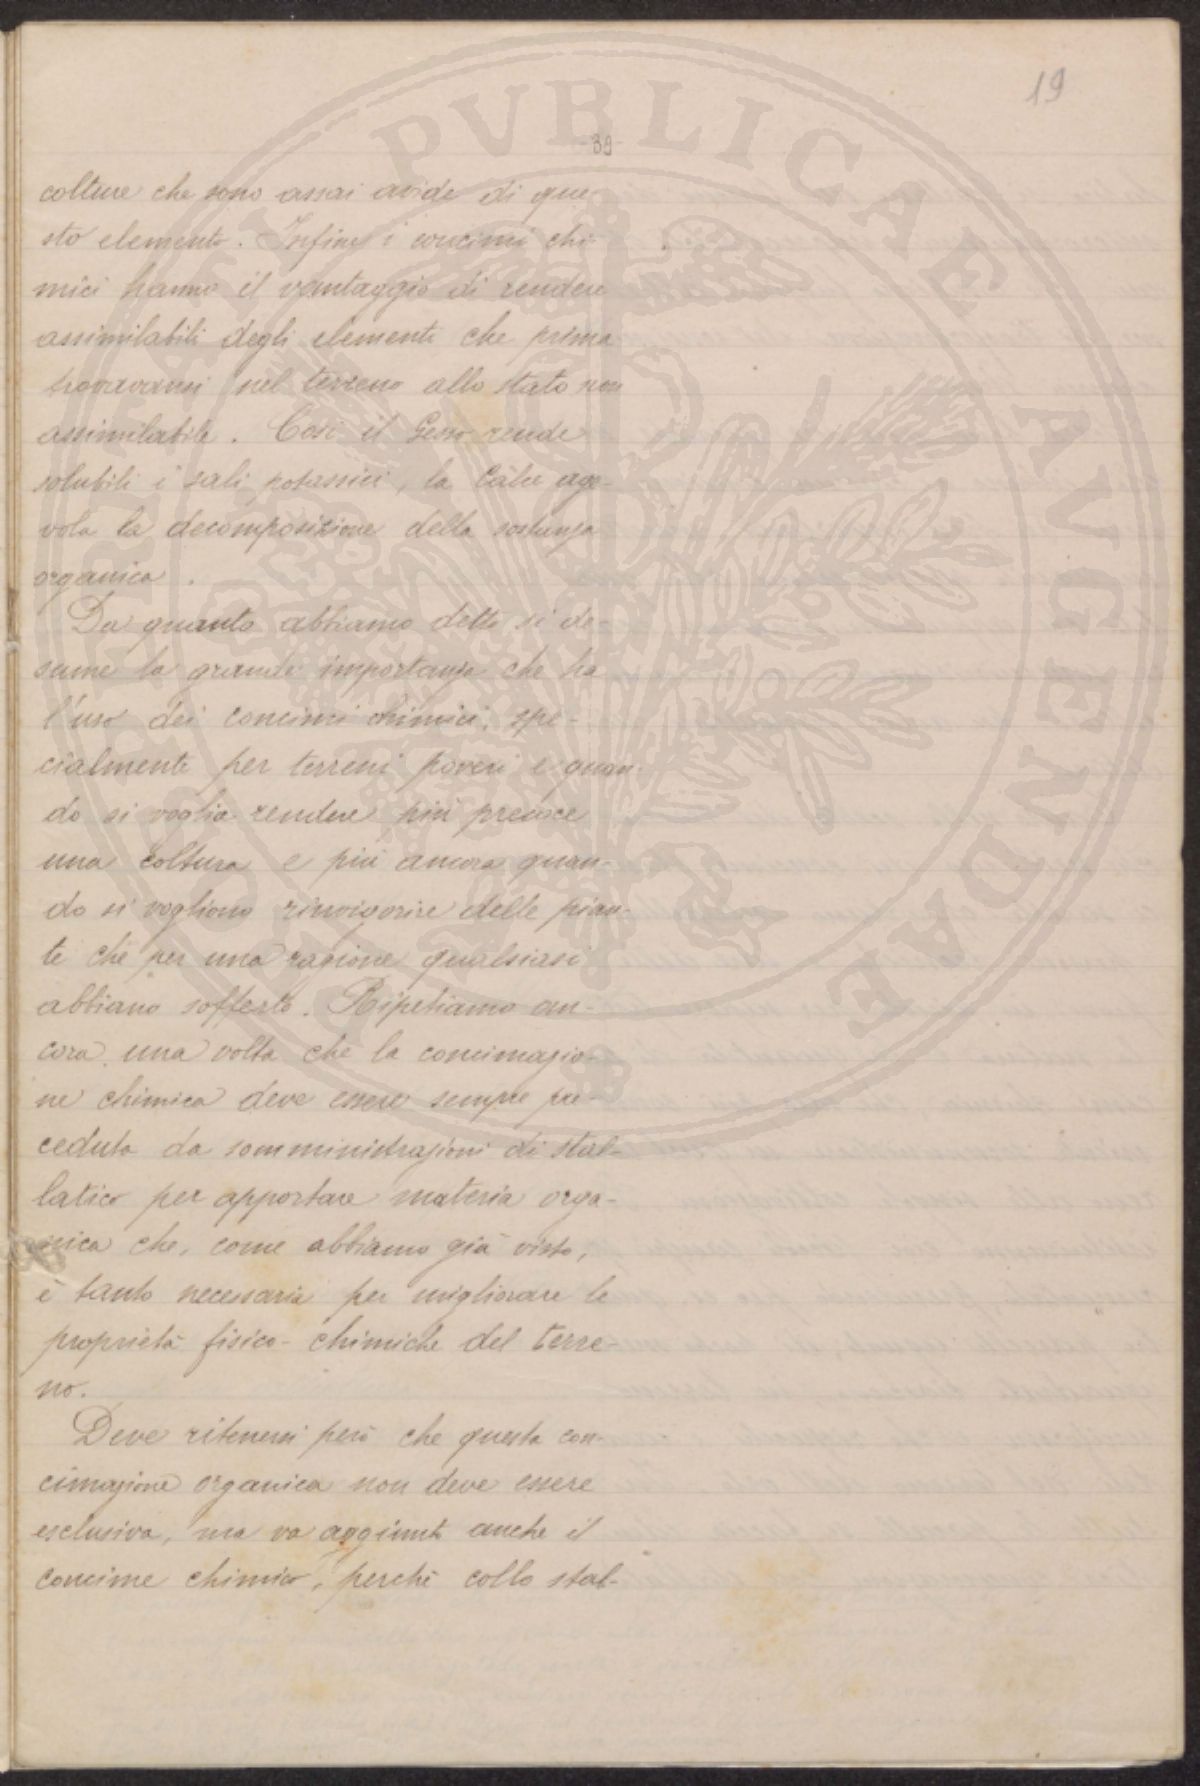 19
-39-
colture che sono assai avide di que-
sto elemento. Infine i concimi chi-
mici hanno il vantaggio di rendere
assimilabili degli elementi che prima
trovavansi nel terreno allo stato non
assimilabile. Così il Gesso rende
solubili i sali potassici, la Calce age-
vola la decomposizione della sostanza
organica.
Da quanto abbiamo detto si de-
sume la grande importanza che ha
l'uso dei concimi chimici, spe-
cialmente per terreni poveri e quan-
do si voglia rendere più precoce
una coltura e più ancora quan-
do si vogliono rinvigorire delle pian-
te che per una ragione qualsiasi
abbiano sofferto. Ripetiamo an-
cora una volta che la concimazio-
ne chimica deve essere sempre pre-
ceduta da somministrazioni di stal-
latico per apportare materia orga-
nica che, come abbiamo già visto,
è tanto necessaria per migliorare le
proprietà fisico-chimiche del terre-
no.
Deve ritenersi però che questa con-
cimazione organica non deve essere
esclusiva, ma va aggiunto anche il
concime chimico, perchè collo stal-
PVBLICAE AVGENDAE